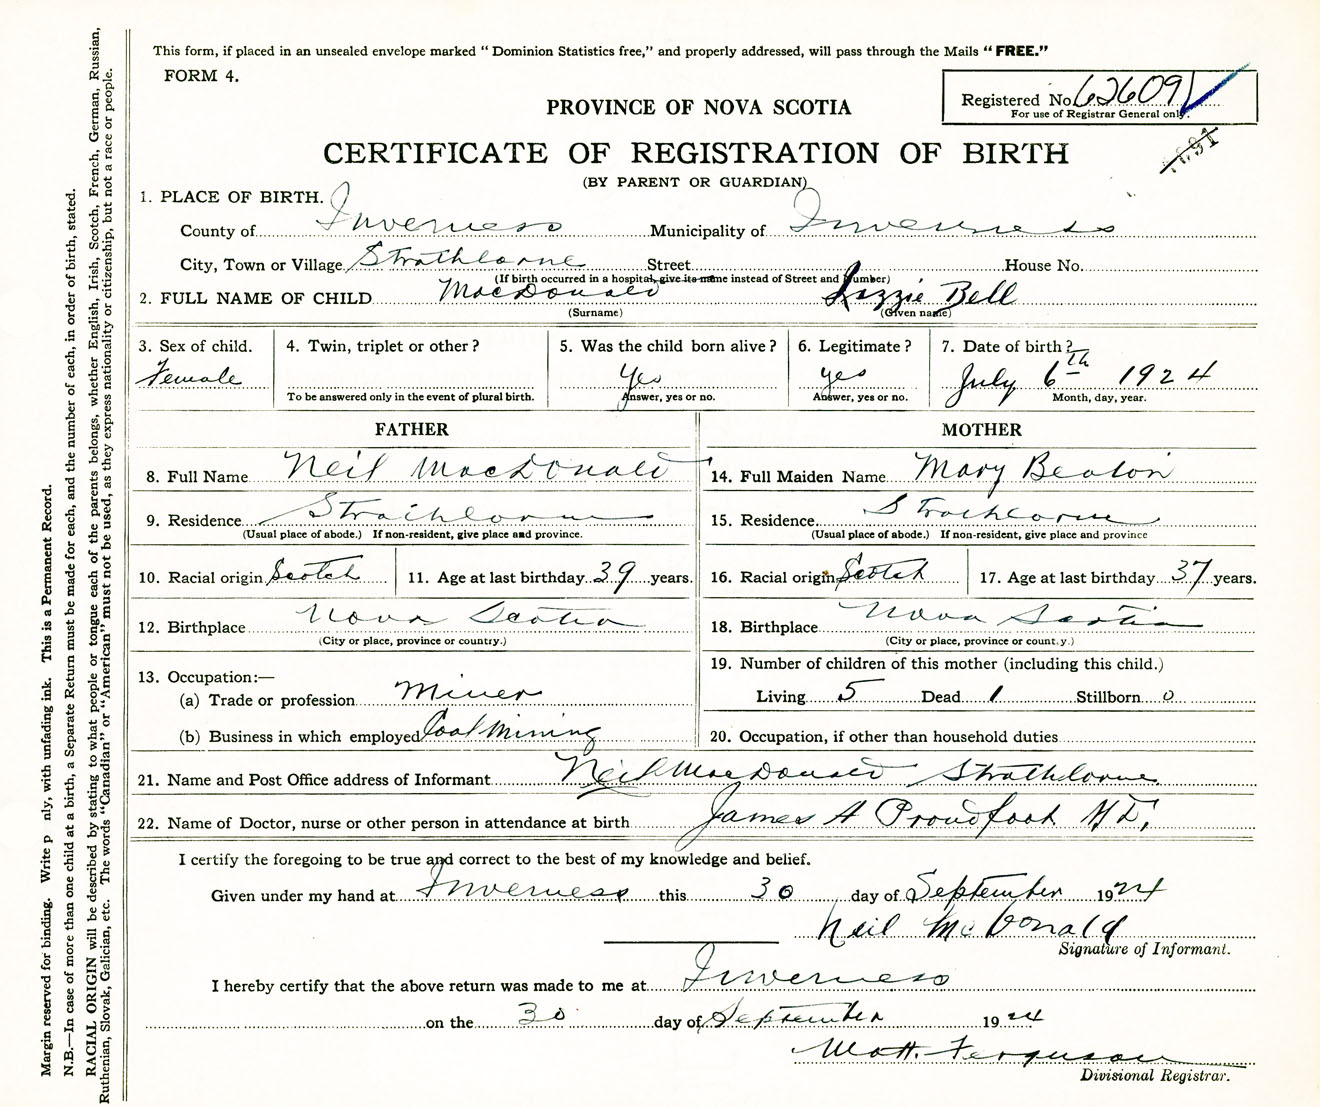 This form, if placed in an unsealed envelope marked “ Dominion Statistics free,” and properly addressed, will pass through the Mails “ FREE.”
FORM 4.
Registered No. 62609
For use of Registrar General only.
PROVINCE OF NOVA SCOTIA
CERTIFICATE OF REGISTRATION OF BIRTH
(BY PARENT OR GUARDIAN)
1. PLACE OF BIRTH.
County of Inverness Municipality of Inverness
City, Town or Village Strathlorne Street House No.
(If birth occurred in a hospital, give its name instead of Street and Number)
2. FULL NAME OF CHILD MacDonald Lizzie Bell
(Surname) (Given name)
3. Sex of child. 4. Twin, triplet or other ? 5. Was the child born alive ? 6. Legitimate ? 7. Date of birth ?
Female Yes yes July 6th 1924
To be answered only in the event of plural birth. Answer, yes or no. Answer, yes or no. Month, day, year.
FATHER MOTHER
8. Full Name Neil MacDonald 14. Full Maiden Name Mary Beaton
9. Residence Strathlorne 15. Residence Strathlorne
(Usual place of abode.) If non-resident, give place and province. (Usual place of abode.) If non-resident, give place and province
10. Racial origin Scotch 11. Age at last birthday 39 years. 16. Racial origin Scotch 17. Age at last birthday 37 years.
12. Birthplace Nova Scotia 18. Birthplace Nova Scotia
(City or place, province or country.) (City or place, province or count.y.)
13. Occupation:— 19. Number of children of this mother (including this child.)
(a) Trade or profession Miner Living 5 Dead 1 Stillborn 0
(b) Business in which employed Coal Mining 20. Occupation, if other than household duties
21. Name and Post Office address of Informant Neil MacDonald Strathlorne
22. Name of Doctor, nurse or other person in attendance at birth James A Proudfoot M.D.
I certify the foregoing to be true and correct to the best of my knowledge and belief.
Given under my hand at Inverness this 30 day of September 1924
Neil McDonald
Signature of Informant.
I hereby certify that the above return was made to me at Inverness
on the 30 day of September 1924
Ferguson
Divisional Registrar.
Margin reserved for binding. Write p nly, with unfading ink. This is a Permanent Record.
N.B.—In case of more than one child at a birth, a Separate Return must be made for each, and the number of each, in order of birth, stated.
RACIAL ORIGIN will be described by stating to what people or tongue each of the parents belongs, whether English, Irish, Scotch, French, German, Russian,
Ruthenian, Slovak, Galician, etc. The words “Canadian” or “American” must not be used, as they express nationality or citizenship, but not a race or people.